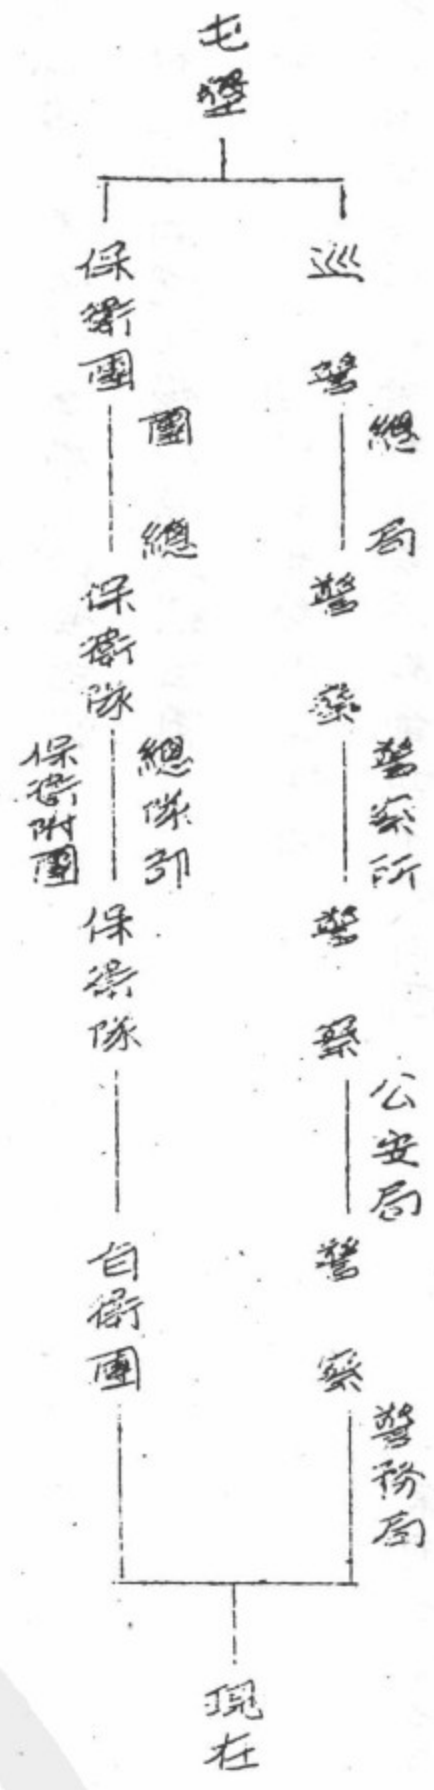 屯墾
巡警
總局
警察
警察所
警察
公安局
警察
警務局
保衛團
團總
保衛隊
總隊部
保衛附團
保衛隊
自衛團
現在